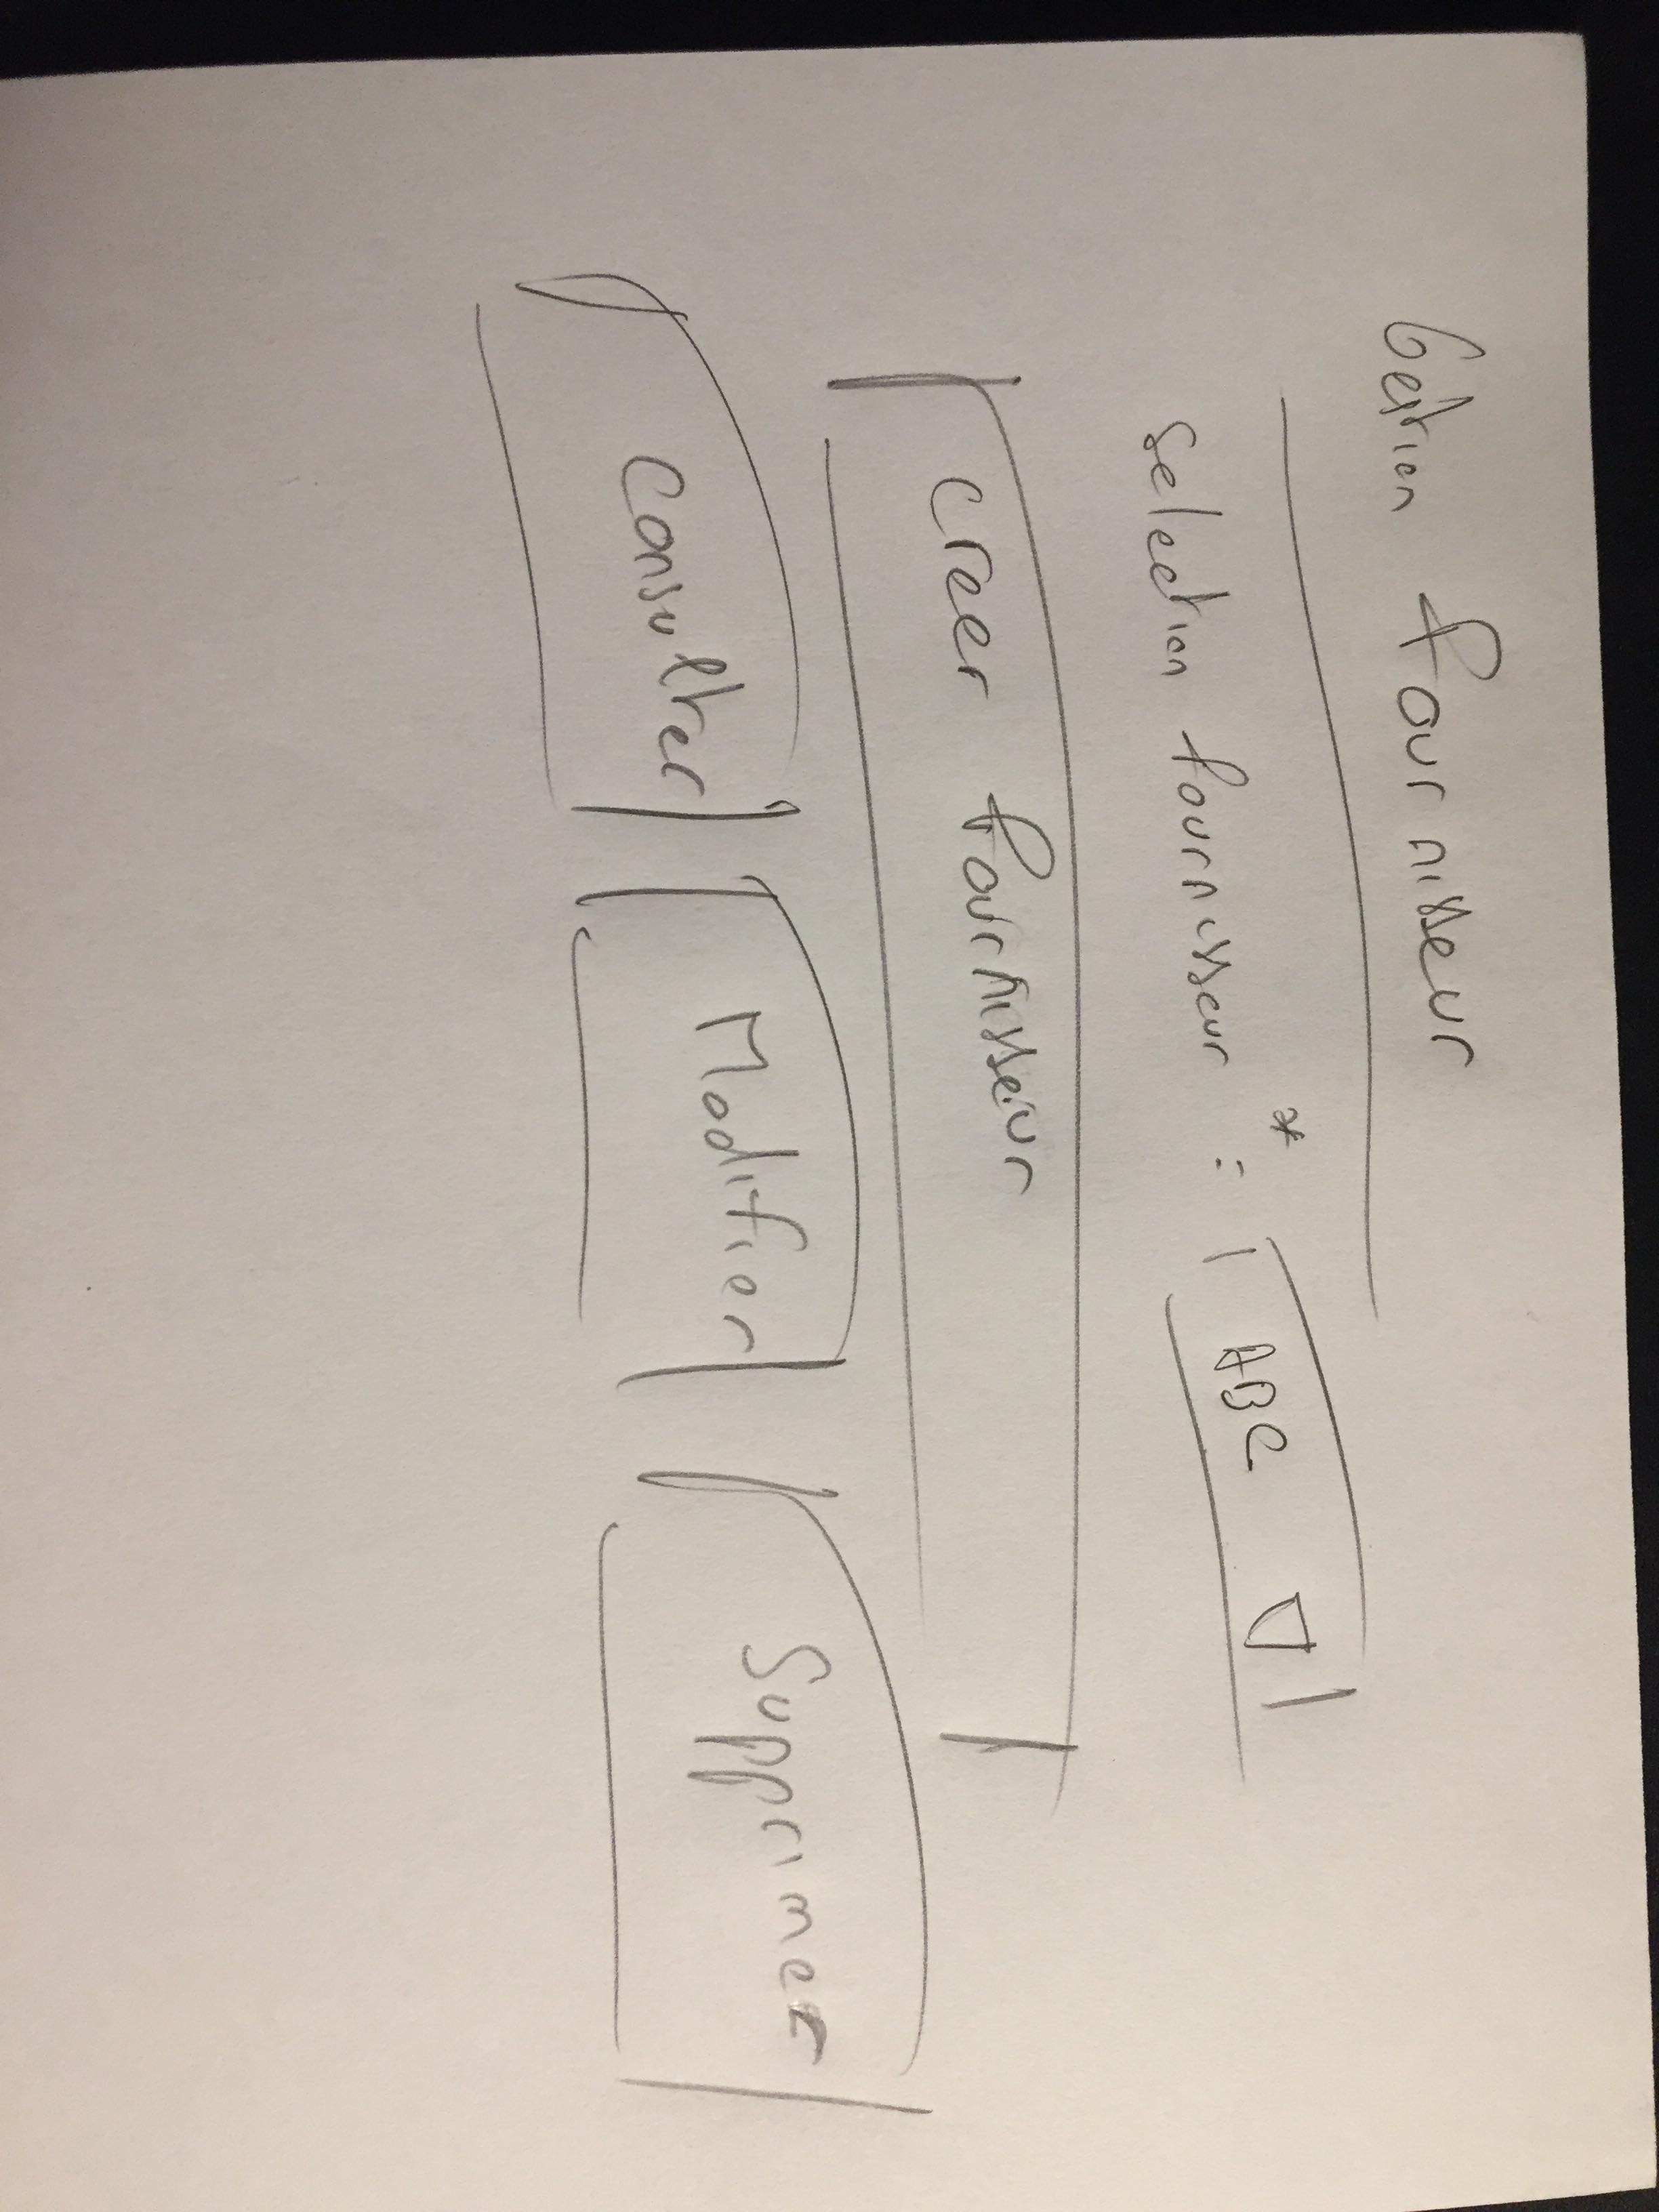 Gestion fournisseur
Selection fournisseur * : ABC
Creer fournisseur
Consulter Modifier Supprimer